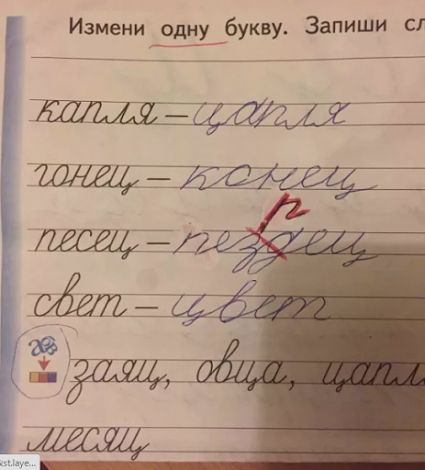 Измени одну букву. Запиши сл
капля – цапля
гонец – конец
песец – пездец
свет – цвет
заяц, овца, цапл
месяц
&st.laye...